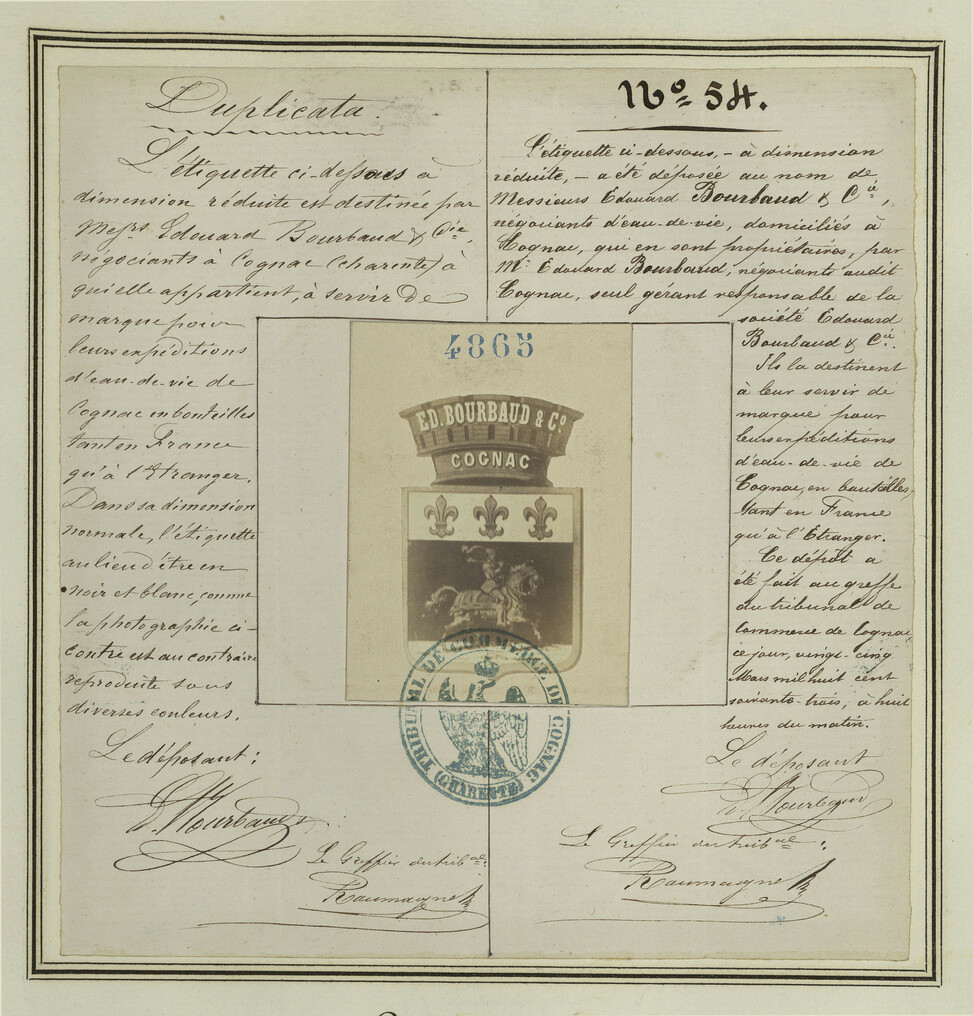 Duplicata.
L'étiquette ci-dessous à
dimension réduite est destinée par
Messrs. Edouard Bourbaud & Cie,
négociants à Cognac (Charente) à
qui elle appartient, à servir de
marque pour
leurs expéditions
d'eau-de-vie de
Cognac en bouteilles
tant en France
qu'à l'Etranger.
Dans sa dimension
normale, l'étiquette
au lieu d'être en
noir et blanc, comme
la photographie ci-
contre est au contraire
reproduite sous
diverses couleurs.
Le déposant:
E. Bourbaud
Le Greffier du tribal:
Roumagne
No 54.
L'étiquette ci-dessous, - à dimension
réduite, - a été déposée au nom de
Messieurs Edouard Bourbaud & Cie,
négociants d'eau-de-vie, domiciliés à
Cognac, qui en sont propriétaires, par
Mr Edouard Bourbaud, négociants audit
Cognac, seul gérant responsable de la
société Edouard
Bourbaud & Cie.
Ils la destinent
à leur servir de
marque pour
leurs expéditions
d'eau-de-vie de
Cognac, en bouteilles,
tant en France
qu'à l'Etranger.
Ce dépôt a
été fait au greffe
du tribunal de
commerce de Cognac
ce jour, vingt-cinq
Mars mil huit cent
soixante-trois, à huit
heures du matin.
Le déposant
E. Bourbaud
Le Greffier du tribal:
Roumagne
4865
ED. BOURBAUD & Co
COGNAC
TRIBUNAL DE COMMERCE DE COGNAC
(CHARENTE)